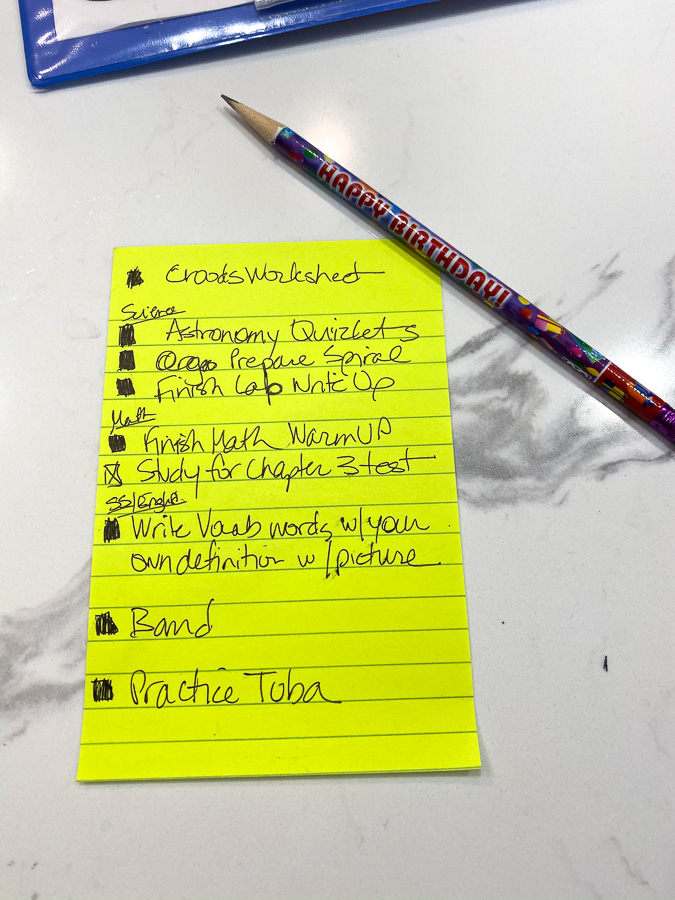 HAPPY BIRTHDAY!
Croods Worksheet
Science
Astronomy Quizlet s
Prepare Spiral
Finish Lab Write Up
Math
Finish Math Warm UP
Study for Chapter 3 test
SS/English
Write Vocab words w/your
own definition w/picture
Band
Practice Tuba